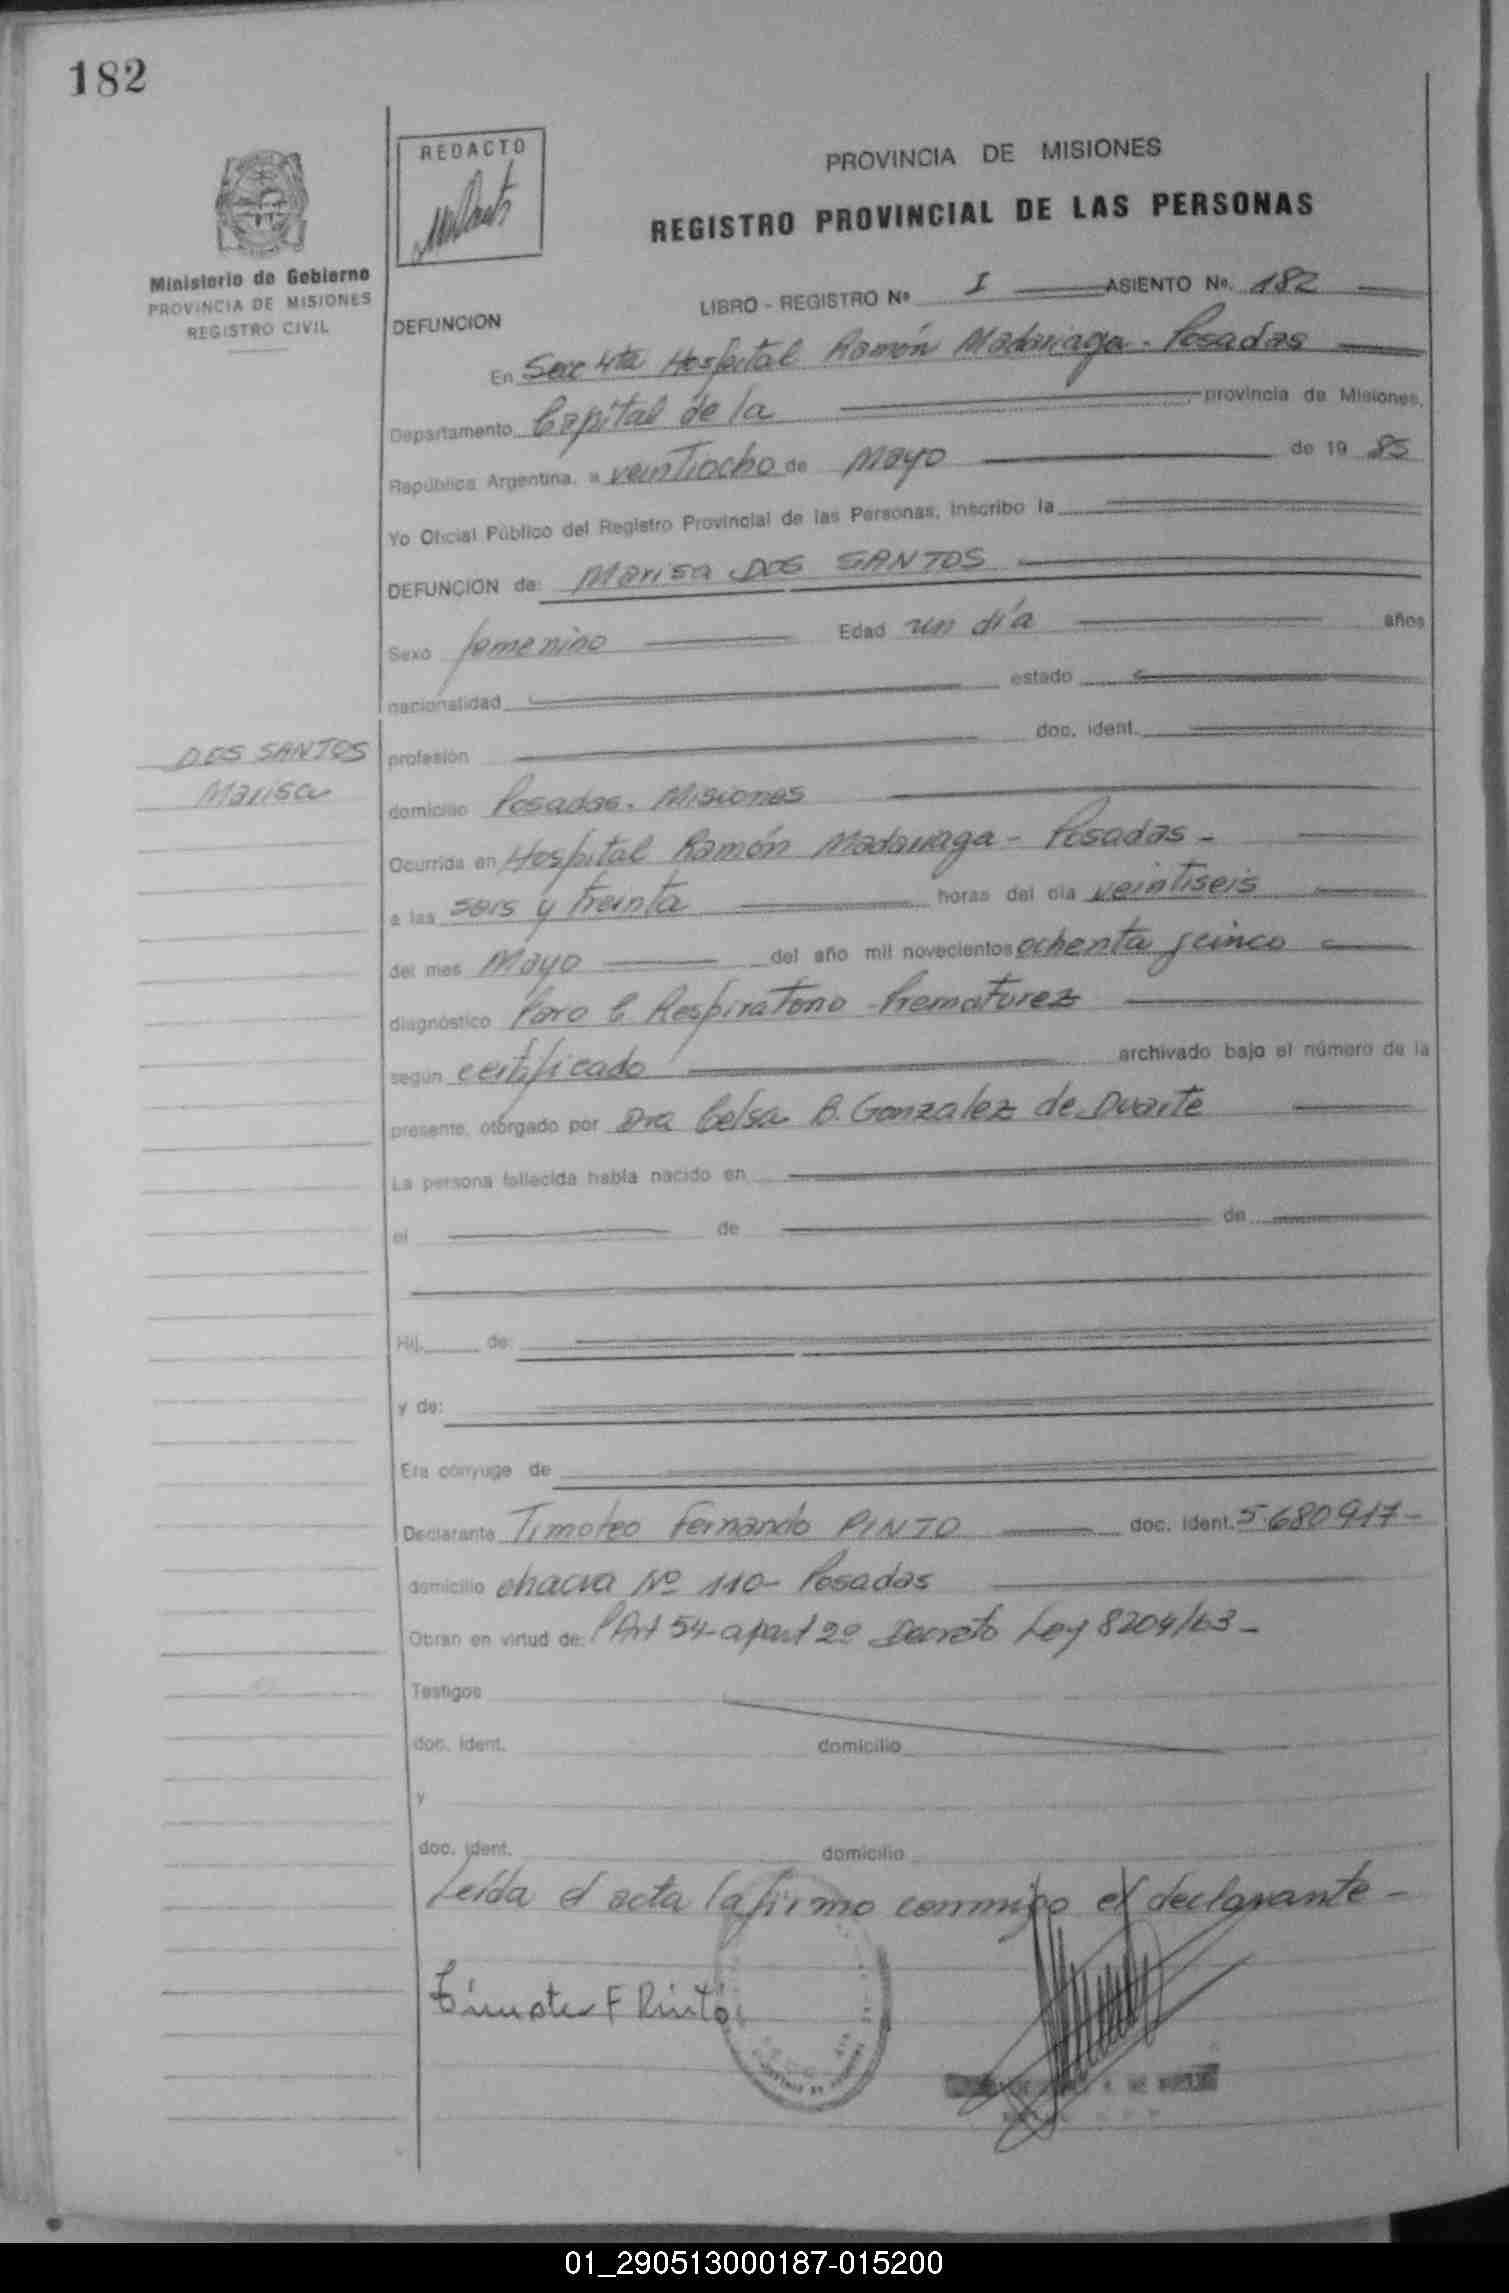 182
REDACTO
PROVINCIA DE MISIONES
REGISTRO PROVINCIAL DE LAS PERSONAS
Ministerio de Gobierno
PROVINCIA DE MISIONES
REGISTRO CIVIL
LIBRO - REGISTRO Nº I ASIENTO No. 182
DEFUNCION
En Secc 4ta Hospital Ramón Madariaga - Posadas
Departamento Capital de la provincia de Misiones,
República Argentina, a veintiocho de Mayo de 19 85
Yo Oficial Público del Registro Provincial de las Personas, Inscribo la
DEFUNCION de: Marisa DOS SANTOS
Sexo femenino Edad un día años
nacionalidad estado
profesión doc. ident.
DOS SANTOS
Marisa
domicilio Posadas. Misiones
Ocurrida en Hospital Ramón Madariaga - Posadas -
a las seis y treinta horas del día veintiseis
del mes Mayo del año mil novecientos ochenta y cinco
diagnóstico Paro C. Respiratorio Prematurez
según certificado archivado bajo el número de la
presente, otorgado por Dra Celsa B. Gonzalez de Duarte
La persona fallecida había nacido en
el de de
Hij de:
y de:
Era cónyuge de
Declarante Timoteo Fernando PINTO doc. ident. 5.680917-
domicilio chacra Nº 110- Posadas
Obran en virtud de: Art 54- apart 2º Decreto Ley 8204/63-
Testigos
doc. ident. domicilio
y
doc. ident. domicilio
Leída el acta la firmo conmigo el declarante -
Timoteo F Pinto
01_290513000187-015200